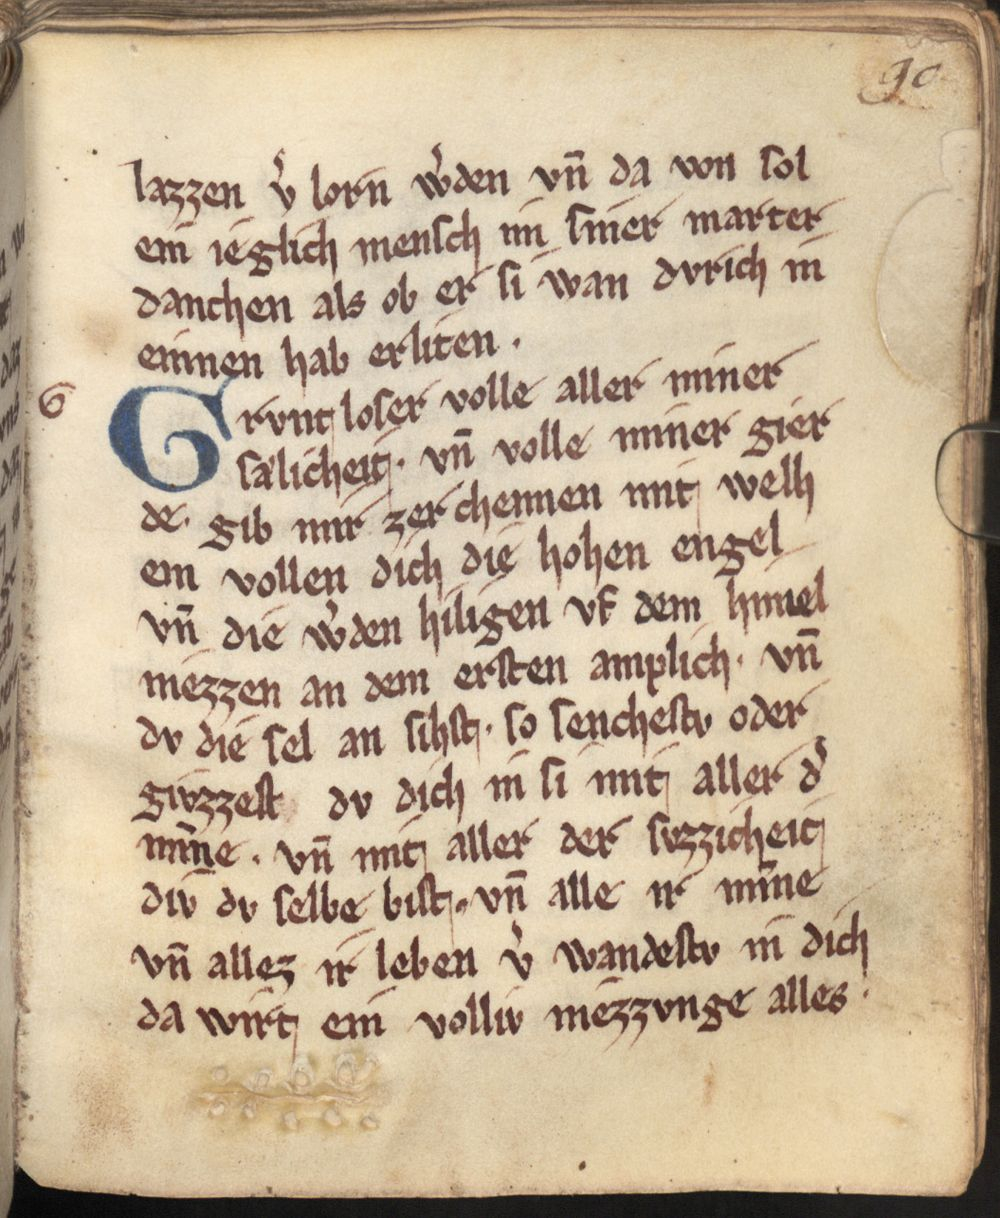 90
lazzen v͛ lorn w͛den vn̄ da von sol
ein ieglich mensch im siner marter
danchen als ob er si wan dvrich in
einnen hab erliten .
G
Grvntloser volle aller miner
sælicheit . vn̄ volle miner gier
de . gib mir zerchennen mit welh
em vollen dich die hohen engel
vn̄ die w͛den hiligen vf dem himel
niezzen an dem ersten anplich . vn̄
dv die sel an sihst . so senchestv oder
givzzest dv dich in si mit aller d͛
min̄e . vn̄ mit aller der svzzicheit
div̄ dv selbe bist . vn̄ alle ir min̄e
vn̄ allez ir leben v͛ wandestv in dich
da wirt ein volliv niezzvnge alles .